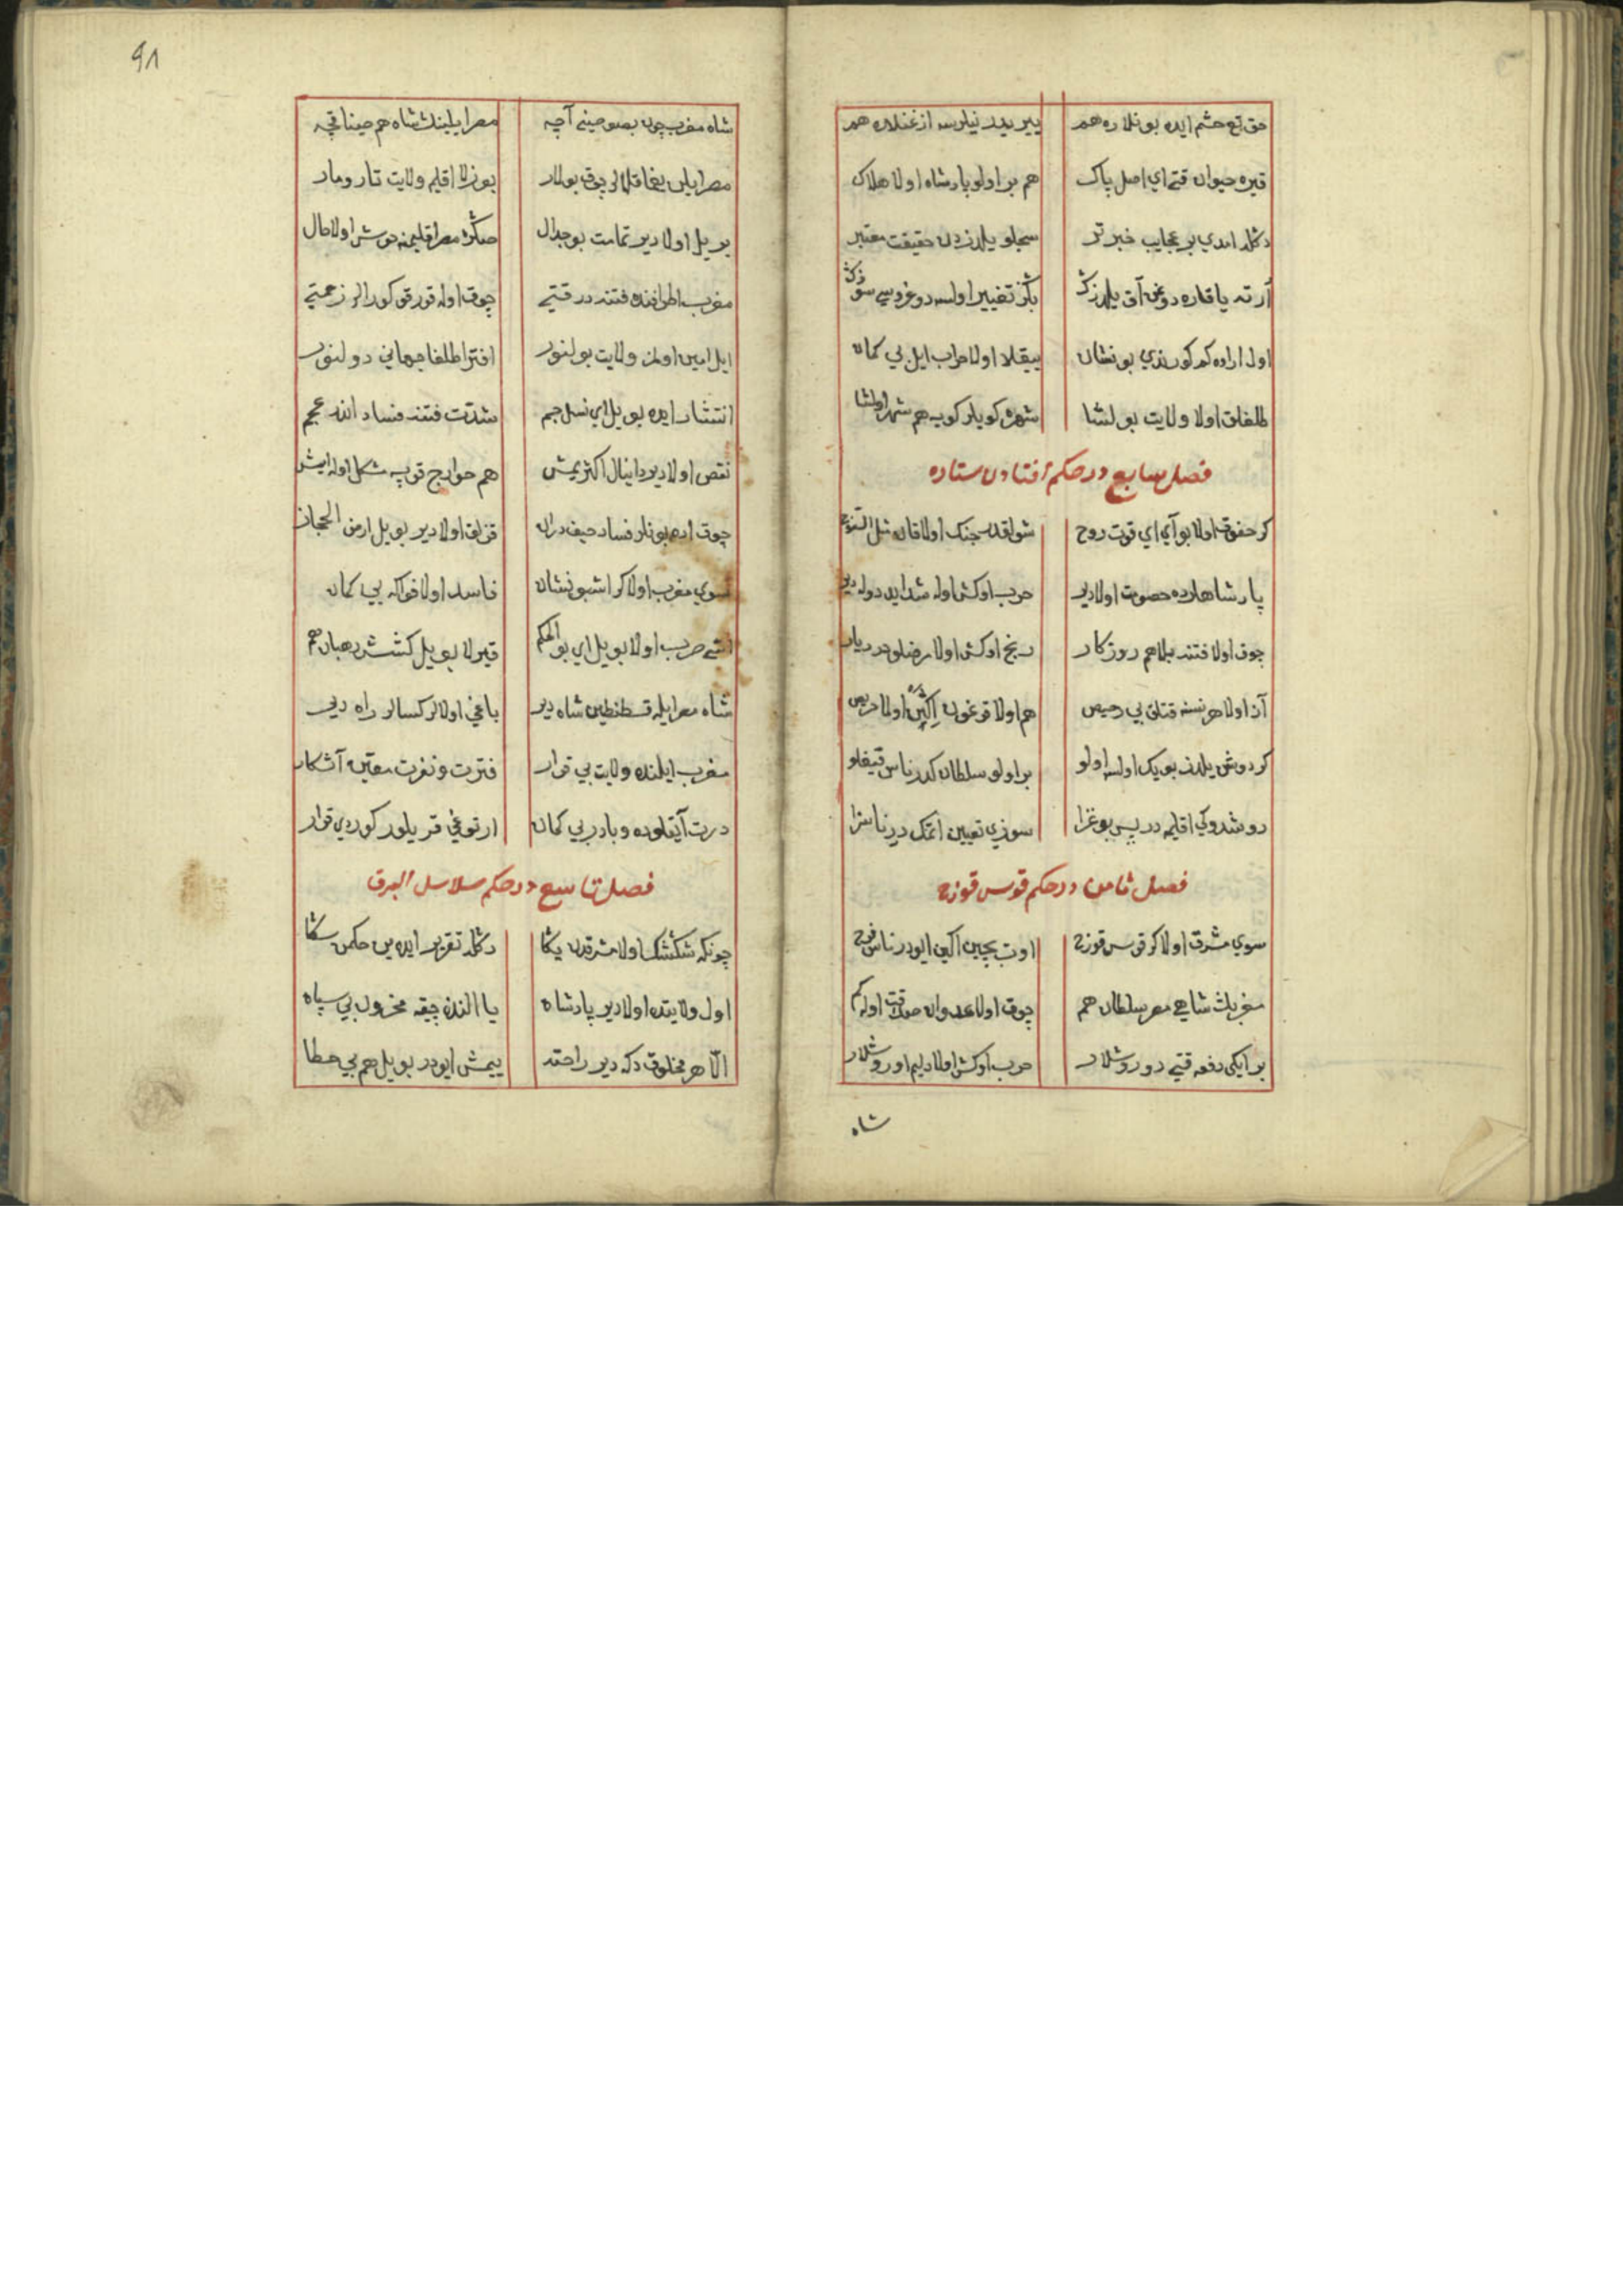 حق تع حشم ایده بونلاره هم ییر یدر نیلرسه از غنلاره هم
قیره حیوان قتی ای اصل پاک هم بر اولو پادشاه اولا هلاک
دکله امدي بر عجایب خبر تر سجلو یلدزدن حقیقت معتبر
آرته یا قاره دوغن آق یلدزک بکز تغییر اولسه دوغروسي سوزک
اول اراده کم کورندي بو نشان ییقلا اولا خراب ایل بي کمان
طلغلق اولا ولایت بولشا شهره کویلر کوب هم شهر اولشا
فصل سابع در حکم افتادن ستاره
کر حفوق اولا بو آي اي قوت روح شولقدر جنک اولا قان مثل
پادشاهلرده خصومت اولا دیر حرب اوکش اوله شداید دوله دیر
چوق اولا فتنه بلا هم روزکار رنج اوکش اولا مرضلو هر دیار
آز اولا هر نسنه قتلق بي رخیص هم اولا قوغون اکثر اولا حریص
کر دوشن یلدز بویک اولسه اولو بر اولو سلطان کدر ناس قیغلو
دوشدوکي اقلیمه در پس بو غزا سوزي تعیین اتمک در ناسزا
فصل ثامن در حکم قوس قوزح
سوي مشرق اولا کر قوس قوزح اوت بچین اکین ایو در ناس فرح
مغربک شاهي مصر سلطان هم چوق اولا عدوان اوله کم
بر ایکي دفعه قتي دوروشلار حرب اوکش اولا دلیم اوروشلار
شاه
٩٨
شاه مغرب چون بصو حینی آچه مصر ایلینک شاه هم حینا قچه
مصر ایلن یغما قلالر چوق بولار بوزلا اقلیم ولایت تار و مار
بر ییل اولا دیر تمامت بو جدال صکره مصر اقلیمنه خوش اولا حال
مغرب اطرافنده فتنه در قتي چوق اوله قورقو کورالر زحمتي
ایل امین اولمز ولایت بولنور افترا طلغا جهاني دولنور
انتشار ایده بو ییل اي نسل جم شدت فتنه فساد الله عجم
نقص اولا دیر دانیال اکثر یمش هم خوارج قوپه مشکل اوله ایش
چوق ادر بونلر فساد حیف دران قزلق اولا دیر بو ییل ارض الحجاز
سوي مغرب اولا کر اشبو نشان فاسد اولا فواکه بي کمان
قتي حرب اولا بو ییل اي بو الحکم قیرلا بو ییل کشش رهبان هم
شاه مصر ایله قسطنطین شاه دیر باغي اولالر کسالر راه دیر
مغرب ایلنده ولایت بي قرار فترت و نفرت معین آشکار
درت آیقلوده وبا در بي کمان ارتوغي قریلور کوردي قرار
فصل تاسع در حکم سلاسل البرق
چونکه شکشک اولا مشرقدن یکا دکله تقریر ایده ین حکمن سکا
اول ولایتده اولا دیر پادشاه یا الندن چیقه مخزون بي سپاه
الا هر مخلوق دکه دیر راحته ییمش ایو در بو ییل هم بي خطا